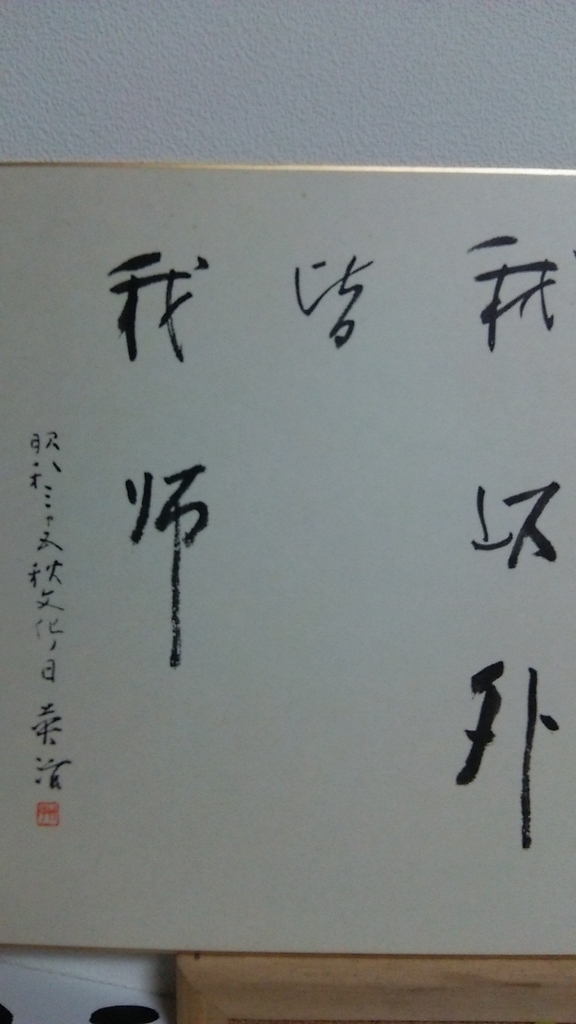 我以外
皆
我師
昭和三十五秋文化ノ日 英治